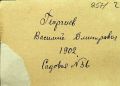 954 2
Георгиев
Василий Дмитриевич
1902
Садовая № 56